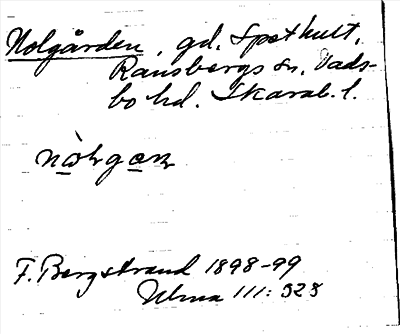 Nolgården, gd. Spethult,
Ransbergs sn. Vads-
bo hd. Skarab. l.
F. Bergstrand 1898-99
Ulma 111: 328